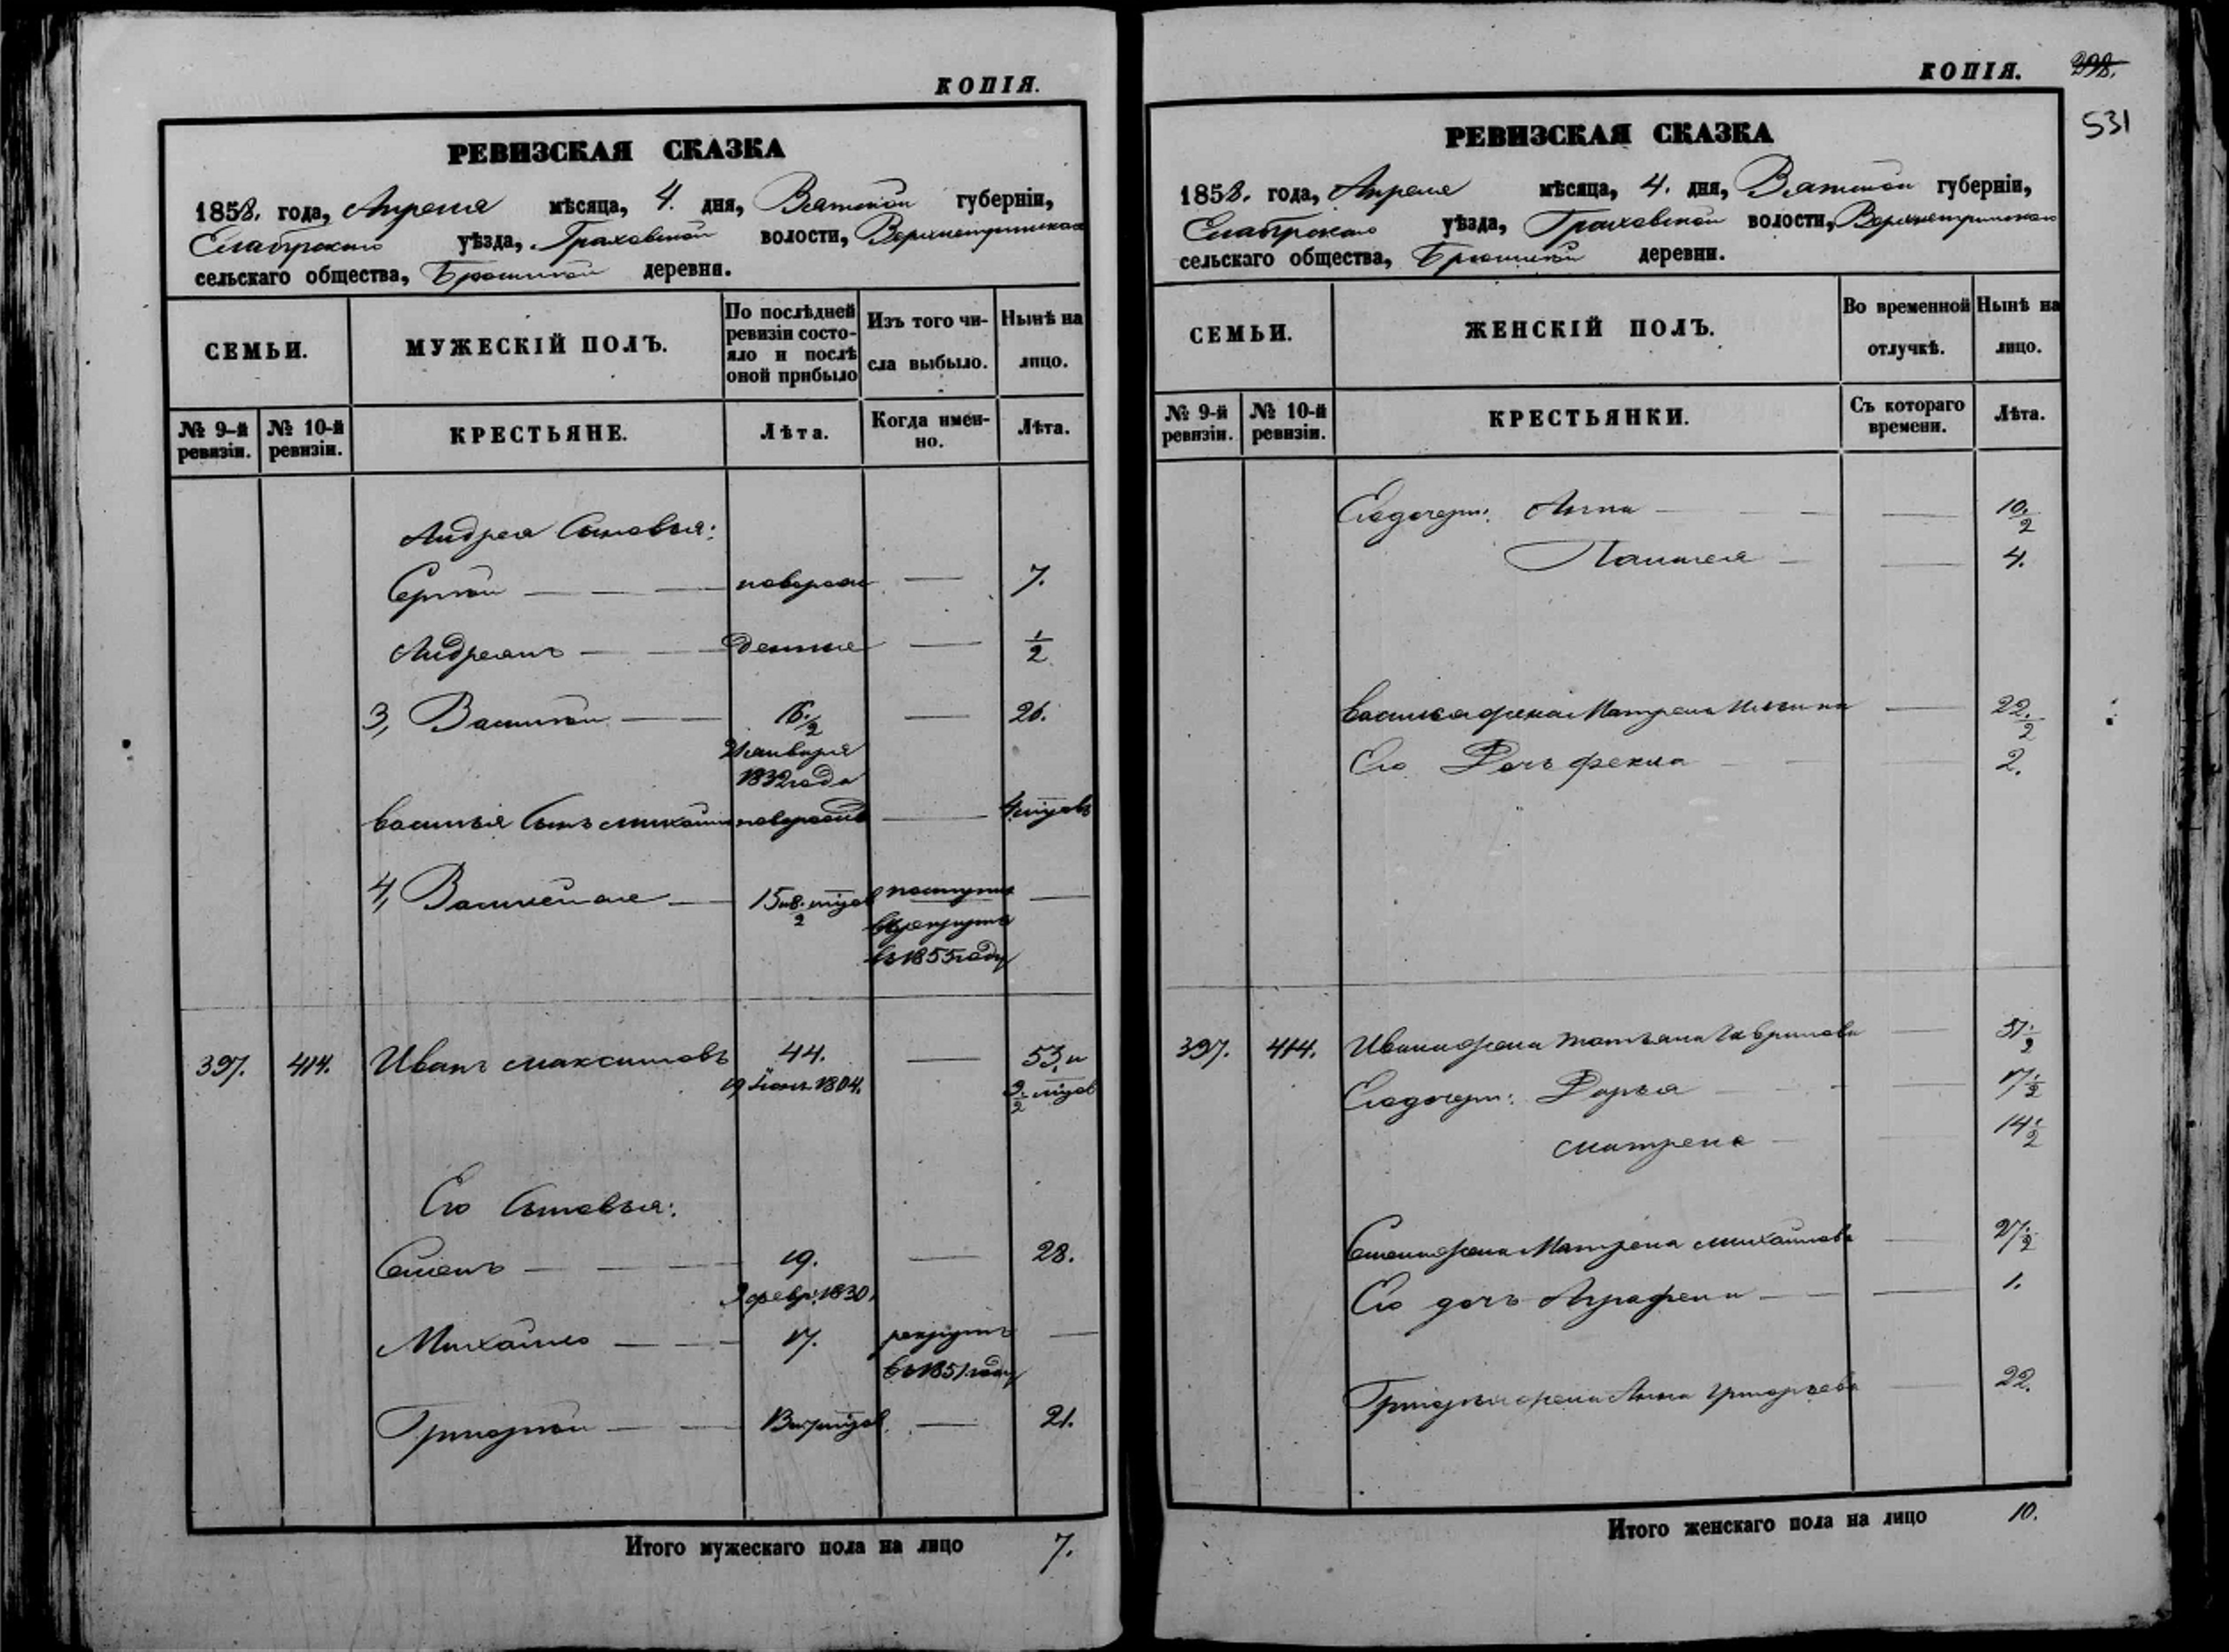 КОПІЯ.
РЕВИЗСКАЯ СКАЗКА
1858. года, Апреля мѣсяца, 4. дня, Вятской губерніи,
Елабужскаго уѣзда, Граховской волости,
сельскаго общества, деревни.
СЕМЬИ.
МУЖЕСКІЙ ПОЛЪ.
По послѣдней ревизіи состояло и послѣ оной прибыло
Изъ того числа выбыло.
Нынѣ на лицо.
№ 9-й ревизіи.
№ 10-й ревизіи.
КРЕСТЬЯНЕ.
Лѣта.
Когда имен-
но.
Лѣта.
Андрея Сыновья:
Сергѣй — новорож — 7.
Андреянъ — денные — 1/2
3, Василій — 16 1/2 — 26.
21 января
1832 года
Василья Сынъ Михайло новорожд — 4 мѣсяц
4, — 15 и 8 1/2 мѣсяц поступил —
в рекруты
въ 1855 году
397. 414. Иванъ Максимовъ 44. — 53. и
19 Іюня 1804. 9 1/2 мѣсяц
Его Сыновья:
Семенъ — 19. — 28.
3 февр. 1830.
Михайло — 17. рекрутъ —
въ 1851 году
Григорій — 13 и 7 мѣсяц — 21.
Итого мужескаго пола на лицо 7.
КОПІЯ. 298.
531
РЕВИЗСКАЯ СКАЗКА
1858. года, Апреля мѣсяца, 4. дня, Вятской губерніи,
Елабужскаго уѣзда, Граховской волости,
сельскаго общества, деревни.
СЕМЬИ.
ЖЕНСКІЙ ПОЛЪ.
Во временной отлучкѣ.
Нынѣ на лицо.
№ 9-й ревизіи.
№ 10-й ревизіи.
КРЕСТЬЯНКИ.
Съ котораго времени.
Лѣта.
Его дочери: Анна — — 10 1/2
— — 4.
Василья жена Матрена Ильина — 22 1/2
Его Дочь Фекла — — 2.
397. 414. Ивана жена Татьяна Гаврилова — 51 1/2
Его дочери: Дарья — — 17 1/2
Матрена — — 14 1/2
Семена жена Матрена Михайлова — 27 1/2
Его дочь Аграфена — — 1.
Григорья жена Анна Григорьева — 22.
Итого женскаго пола на лицо 10.